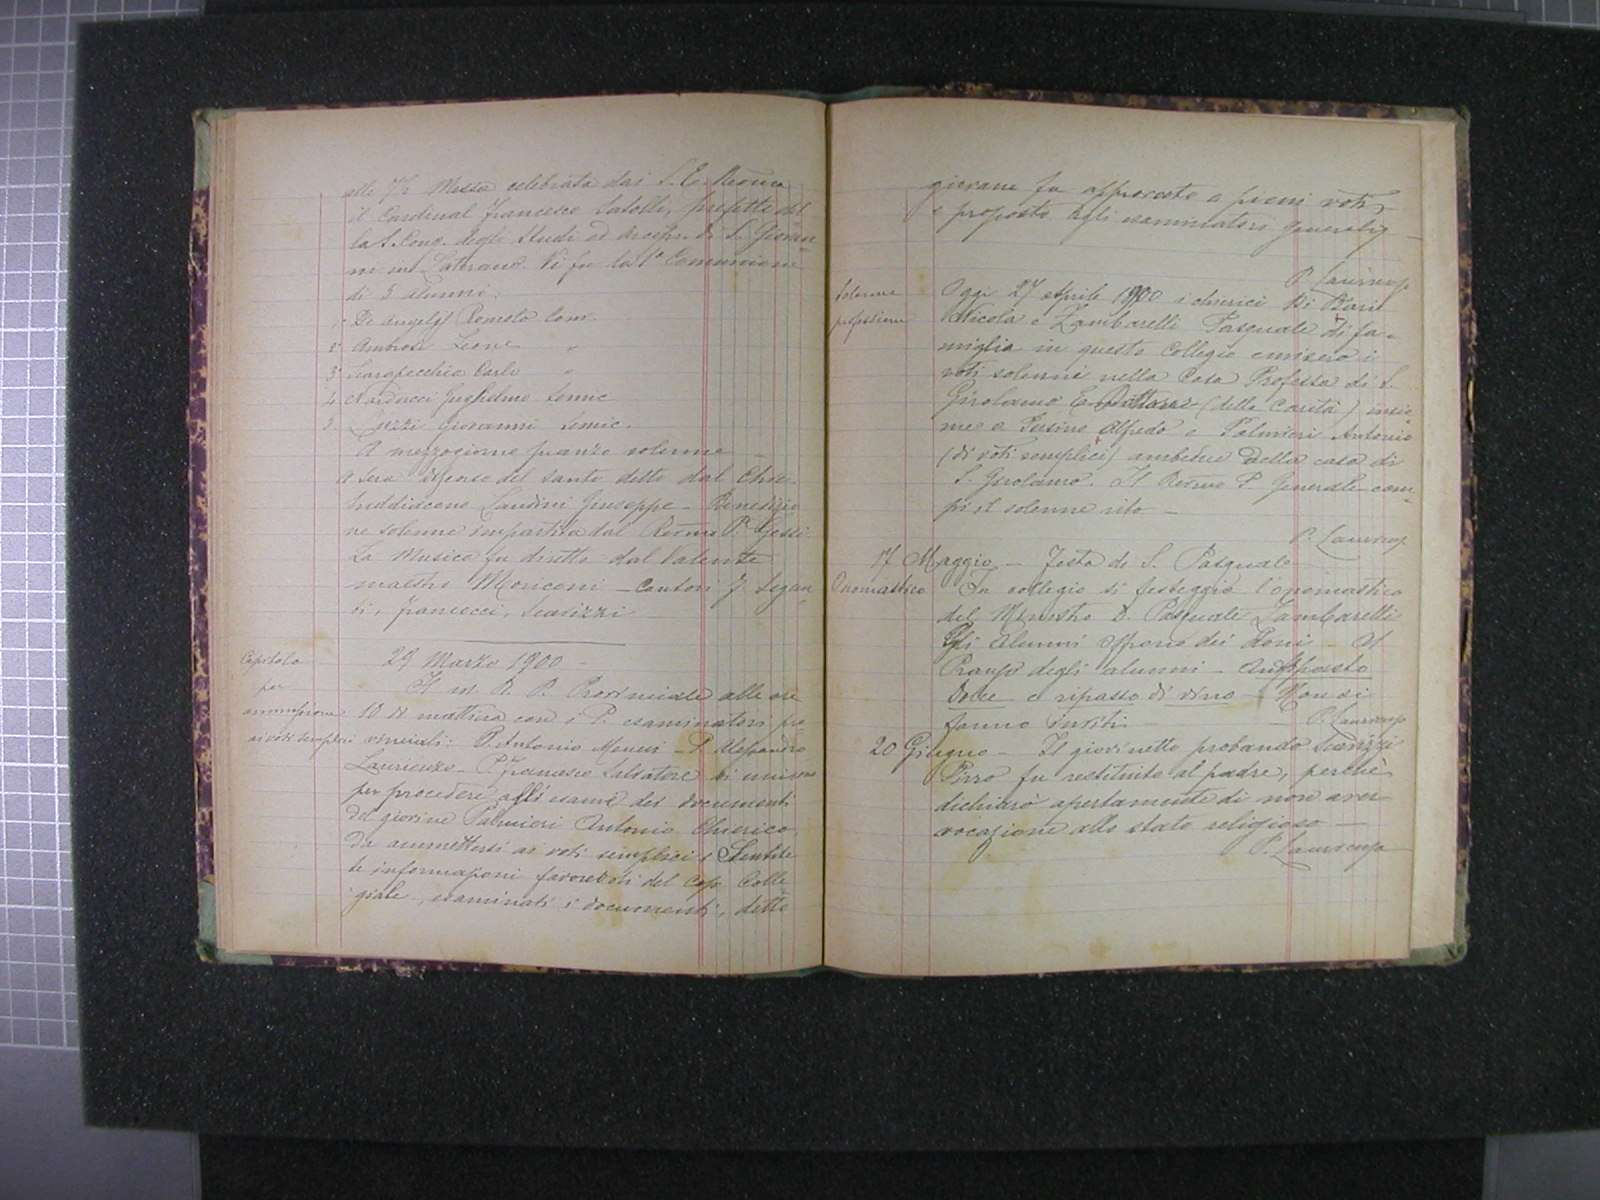 alle 7½ Messa celebrata dai S. E. Rma
il Cardinal Francesco Satolli, prefetto del
la S. Cong. degli Studi ed Arcipr. di S. Giovan
ni in Laterano. Vi fu la 1ª Comunione
di 5 alunni:
1º De Angelis Romolo Conv.
2º Ambrosi Leone "
3º Carlo "
4 Narducci Guglielmo Semic
5. Luzzi Giovanni Semic.
A mezzogiorno pranzo solenne
A sera discorso del Santo detto dal Chier.
Suddiacono Landini Giuseppe - Benedizio
ne solenne impartita dal Rmo P. Gessi.
La Musica fu diretta dal valente
maestro Moriconi - Cantori
ri, Francucci, Scarizzi
Capitolo
per
ammissione
ai voti semplici
29 Marzo 1900 -
Il m. R. P. Provinciale alle ore
10 di mattina con i P. esaminatori pro
vinciali: P. Antonio - P. Alessandro
Laurenzo - P. Francesco Salvatore si unirono
per procedere all'esame dei documenti
del giovine Palmieri Antonio Chierico,
da ammettersi ai voti semplici. Sentite
le informazioni favorevoli del Cap. Colle
giale, esaminati i documenti, detto
giovane fu approvato a pieni voti,
e proposto agli esaminatori Generali
P. Laurenzo
Solenne
professione
Oggi 27 Aprile 1900 i chierici Di Bari
Nicola e Zambarelli Pasquale di fa-
miglia in questo Collegio emisero i
voti solenni nella Casa Professa di S.
Girolamo (della Carità) insie
me a Alfredo e Palmieri Antonio
(di voti semplici) ambedue della casa di
S. Girolamo. Il Rmo P. Generale com-
pì il solenne rito -
P. Laurenzo
17 Maggio - Festa di S. Pasquale
Onomastico
In collegio si festeggia l'onomastico
del Ministro D. Pasquale Zambarelli
Gli alunni offrono dei doni - Il
Pranzo degli alunni - Antipasto
Dolce e ripasso di vino - Non si
fanno inviti -
P. Laurenzo
20 Giugno - Il giovinetto probando Scarizzi
Pirro fu restituito al padre, perché
dichiarò apertamente di non aver
vocazione allo stato religioso -
P. Laurenzo